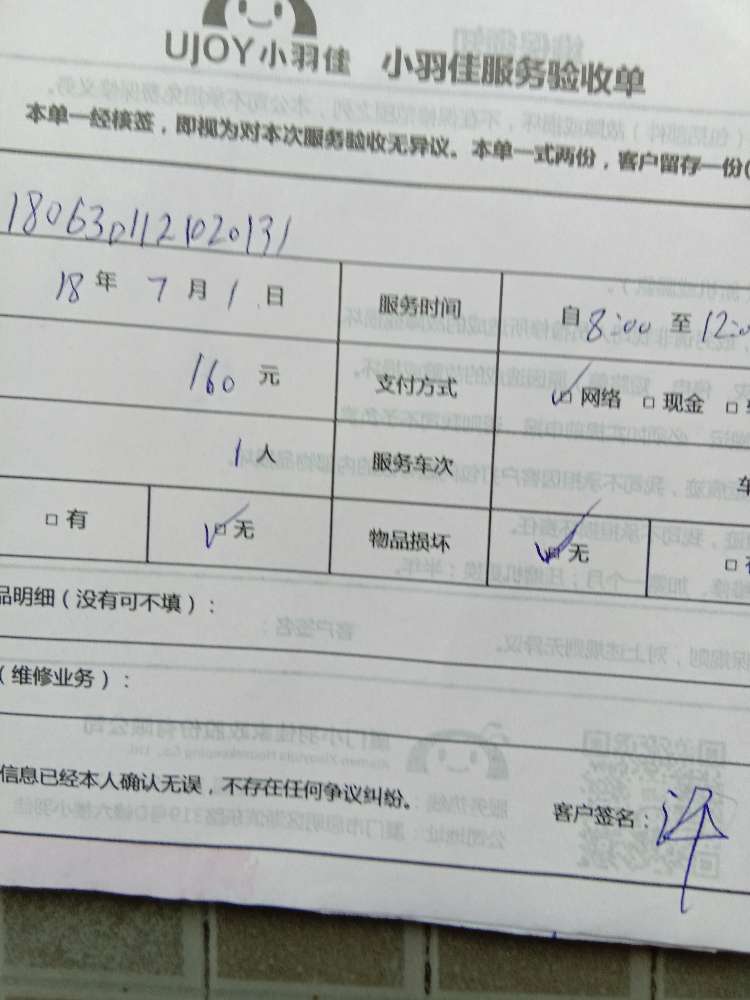 UJOY小羽佳 小羽佳服务验收单
本单一经核签，即视为对本次服务验收无异议。本单一式两份，客户留存一份
1806301121020131
18年7月1日 服务时间 自8:00至12:0
160元 支付方式 ☑网络 □现金 □
1人 服务车次 车
□有 ☑无 物品损坏 ☑无 □
品明细（没有可不填）：
（维修业务）：
信息已经本人确认无误，不存在任何争议纠纷。
客户签名：许